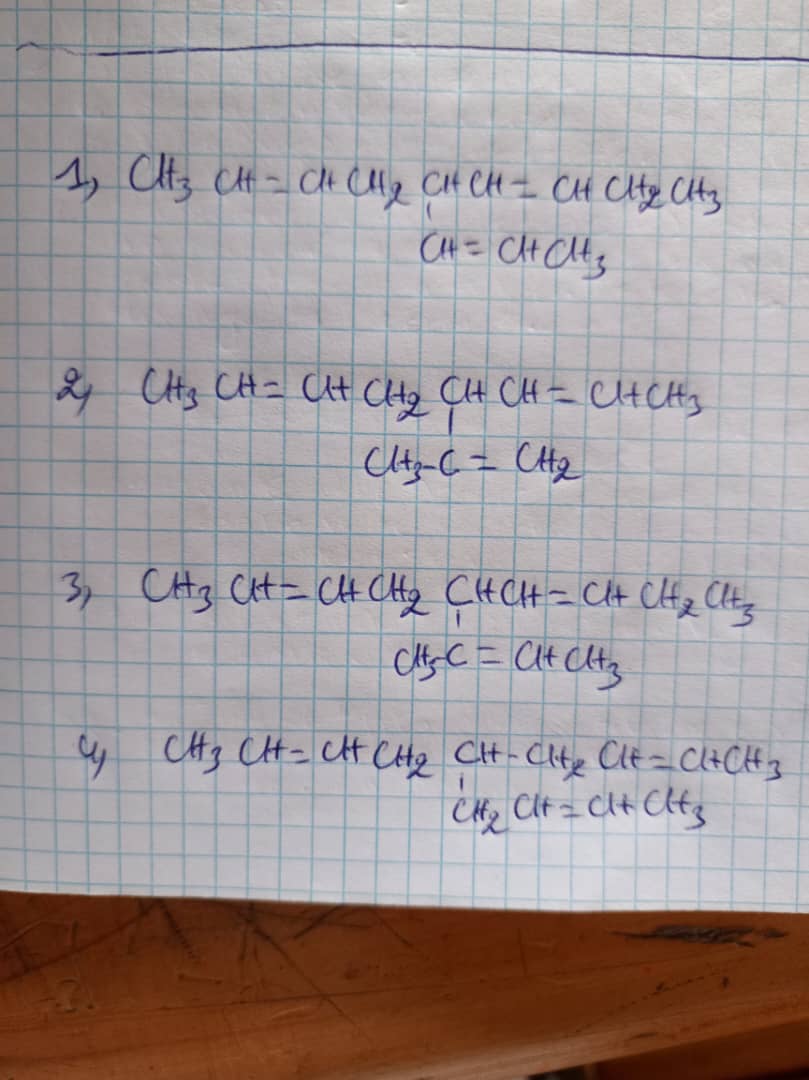 1, CH3 CH = CH CH2 CH CH = CH CH2 CH3
CH = CH CH3
2, CH3 CH = CH CH2 CH CH = CH CH3
CH3-C = CH2
3, CH3 CH = CH CH2 CH CH = CH CH2 CH3
CH3-C = CH CH3
4, CH3 CH = CH CH2 CH - CH2 CH = CH CH3
CH2 CH = CH CH3